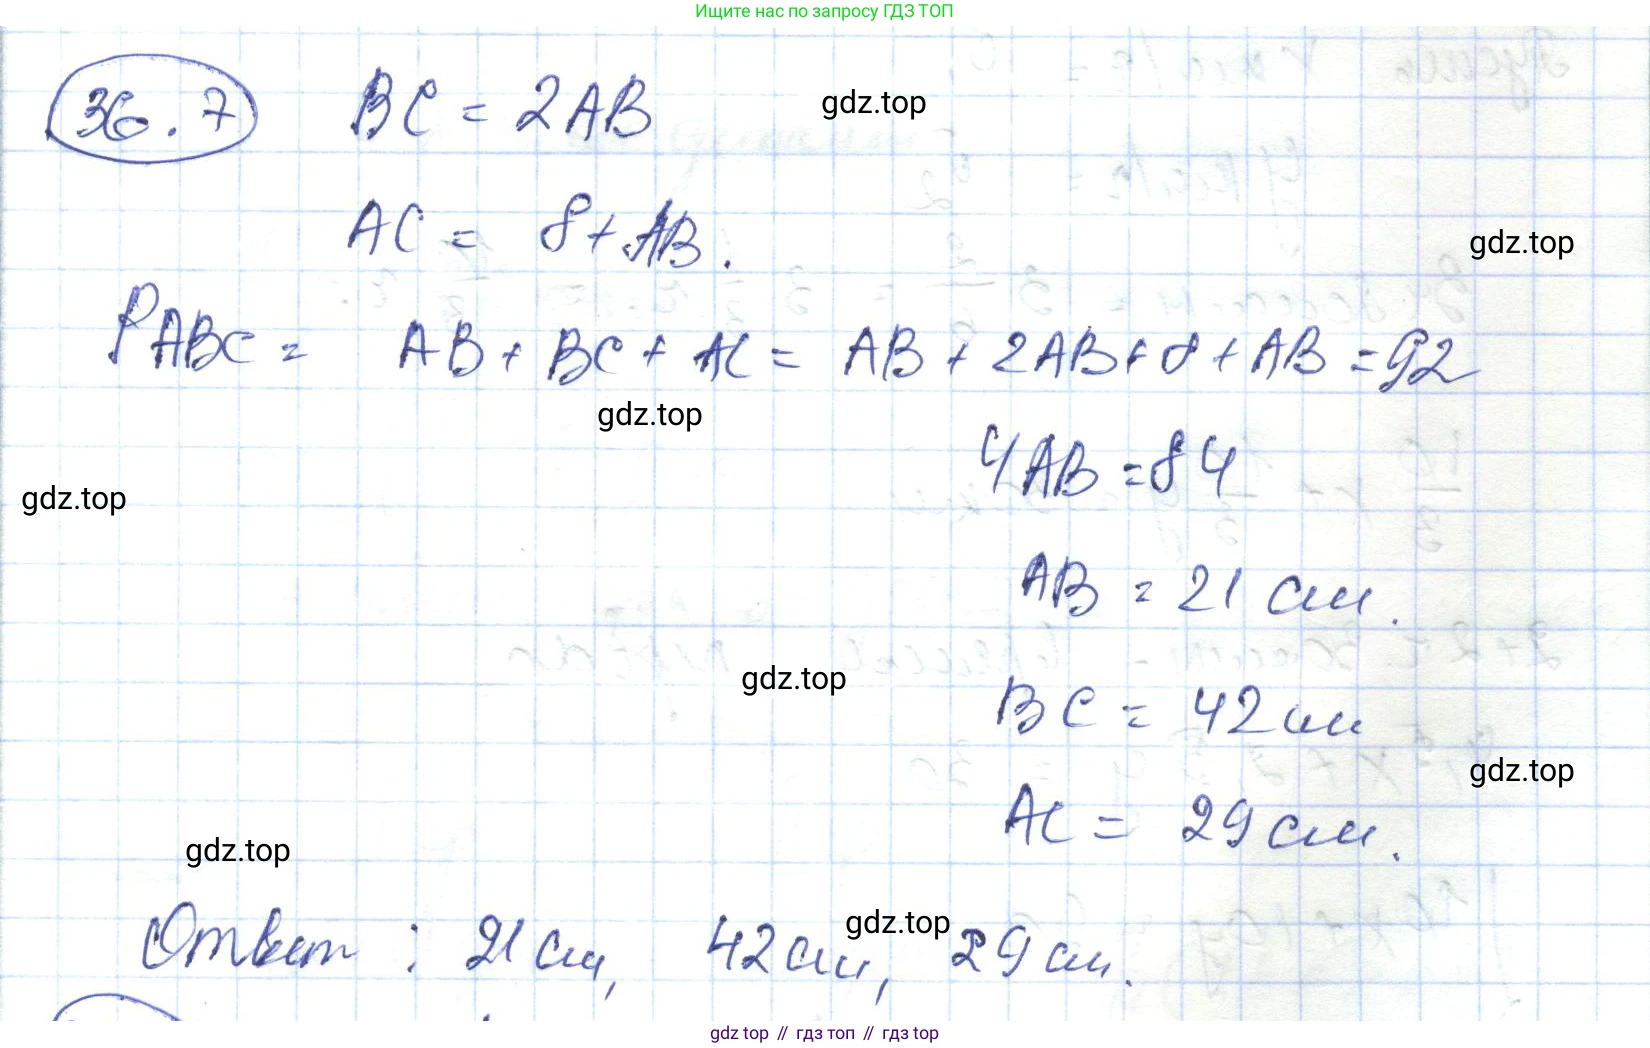 Ищите нас по запросу ГДЗ ТОП
36.7 BC = 2AB
gdz.top
AC = 8 + AB.
gdz.top
P ABC = AB + BC + AC = AB + 2AB + 8 + AB = 92
gdz.top
4AB = 84
gdz.top
AB = 21 см.
gdz.top
BC = 42 см
gdz.top
AC = 29 см.
gdz.top
Ответ: 21 см, 42 см, 29 см.
gdz.top
gdz top // гдз топ // гдз top